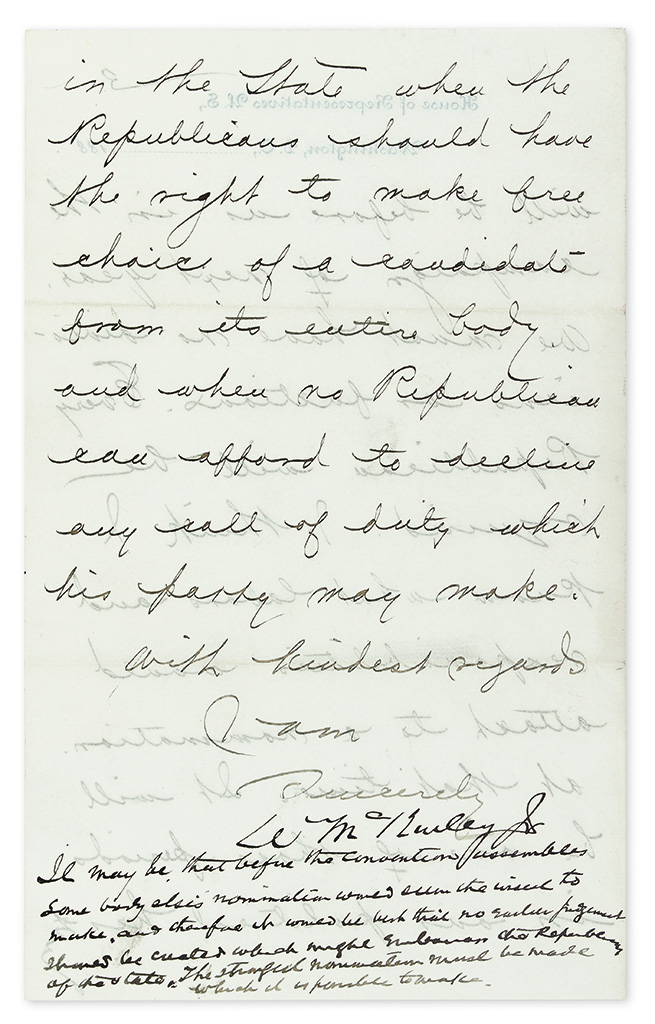 in the State when the
Republicans should have
the right to make free
choice of a candidate
from its entire body
and when no Republican
can afford to decline
any call of duty which
his party may make.
With kindest regards
I am
Sincerely
W McKinley Jr
It may be that before the convention assembles
some body else's nomination would seem the wisest to
make, and therefore it would be best that no earlier judgment
should be created which might embarrass the Republicans
of the state. The strongest nomination must be made
which it is possible to make.
House of Representatives U.S.,
Washington, D.C.,